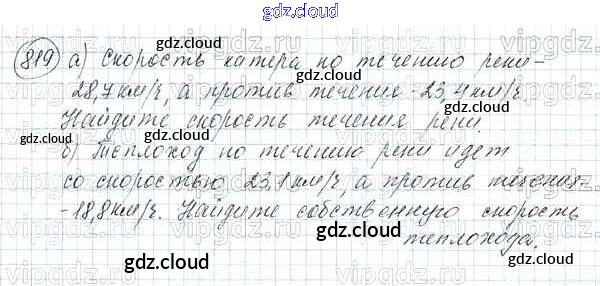 gdz.cloud
819) а) Скорость катера по течению реки-
28,7 км/ч, а против течения -23,4 км/ч.
Найдите скорость течения реки.
б) Теплоход по течению реки идет
со скоростью 23,1 км/ч, а против течения-
-18,8 км/ч. Найдите собственную скорость
теплохода.
gdz.cloud
gdz.cloud
gdz.cloud
gdz.cloud
gdz.cloud
gdz.cloud
gdz.cloud
gdz.cloud
gdz.cloud
gdz.cloud
gdz.cloud